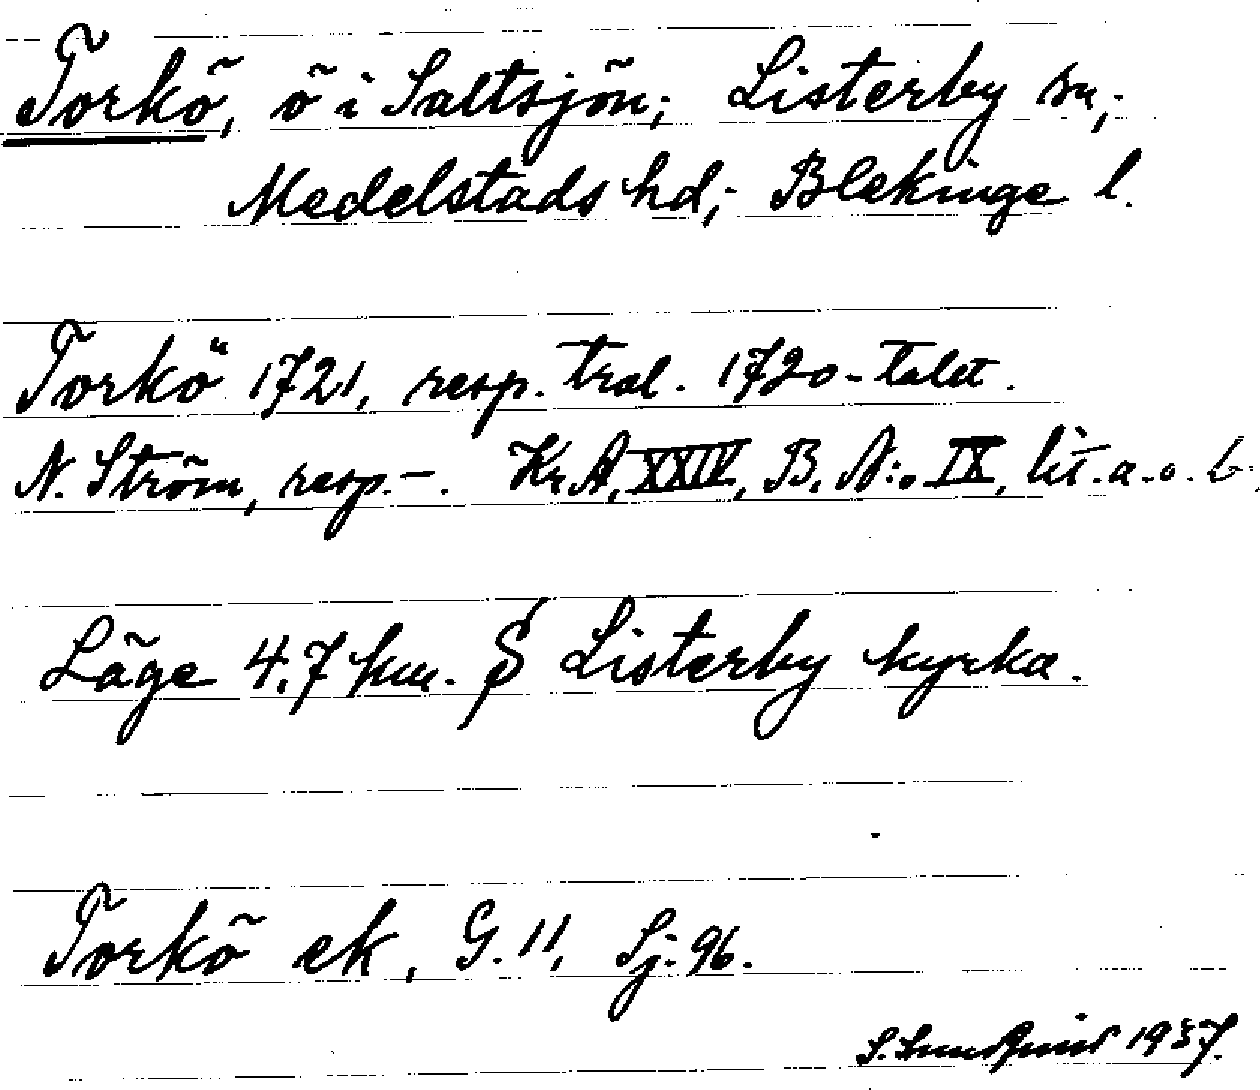 Torkö, ö i Saltsjön; Listerby sn,;
Medelstads hd,; Blekinge l.
Torkö 1721, resp. tral. 1720-talet.
N. Ström, resp.-. Kr.A. XXIV, B. N:o IX, lit. a. o. b.
Läge 4.7 km. S Listerby kyrka.
Torkö ek, G. 11, Sj. 96.
S. Sundquist 1937.